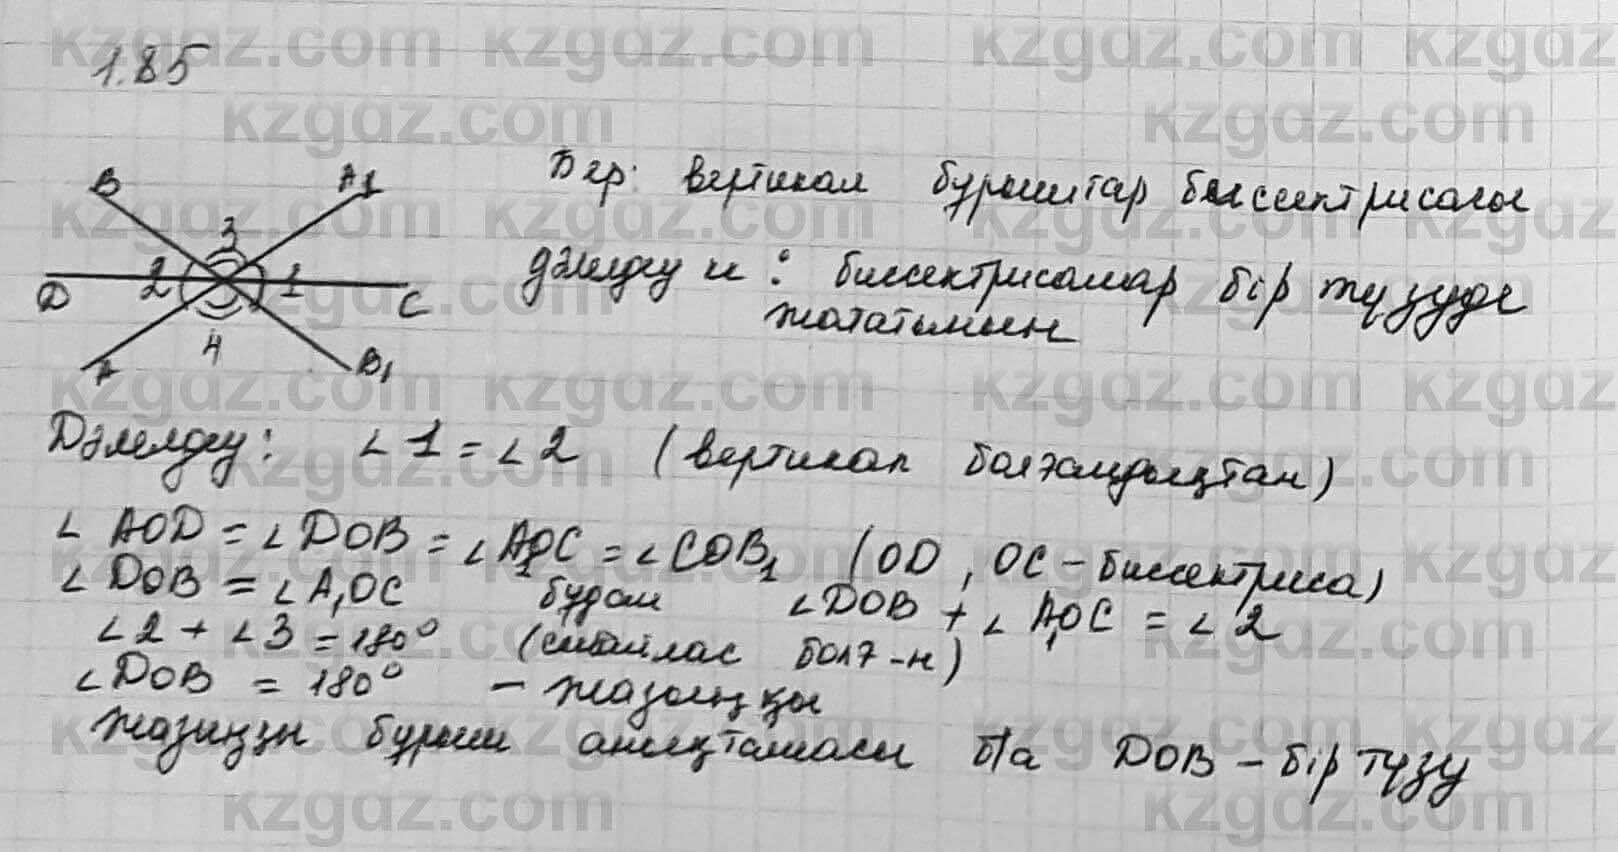 1.85
B
A1
3
2
1
D
C
4
A
B1
Бер: вертикал бұрыштар биссектрисасы
Дәлелдеу к: биссектрисалар бір түзуде
жататынын
Дәлелдеу: ∠1 = ∠2 (вертикал болғандықтан)
∠AOD = ∠DOB = ∠A1OC = ∠COB1 (OD, OC - биссектриса)
∠DOB = ∠A1OC бұдан ∠DOB + ∠A1OC = ∠2
∠2 + ∠3 = 180° (сыбайлас болғ-н)
∠DOB = 180° - жазыңқы
Жазыңқы бұрыш анықтамасы б/а DOB - бір түзу
kzgdz.com